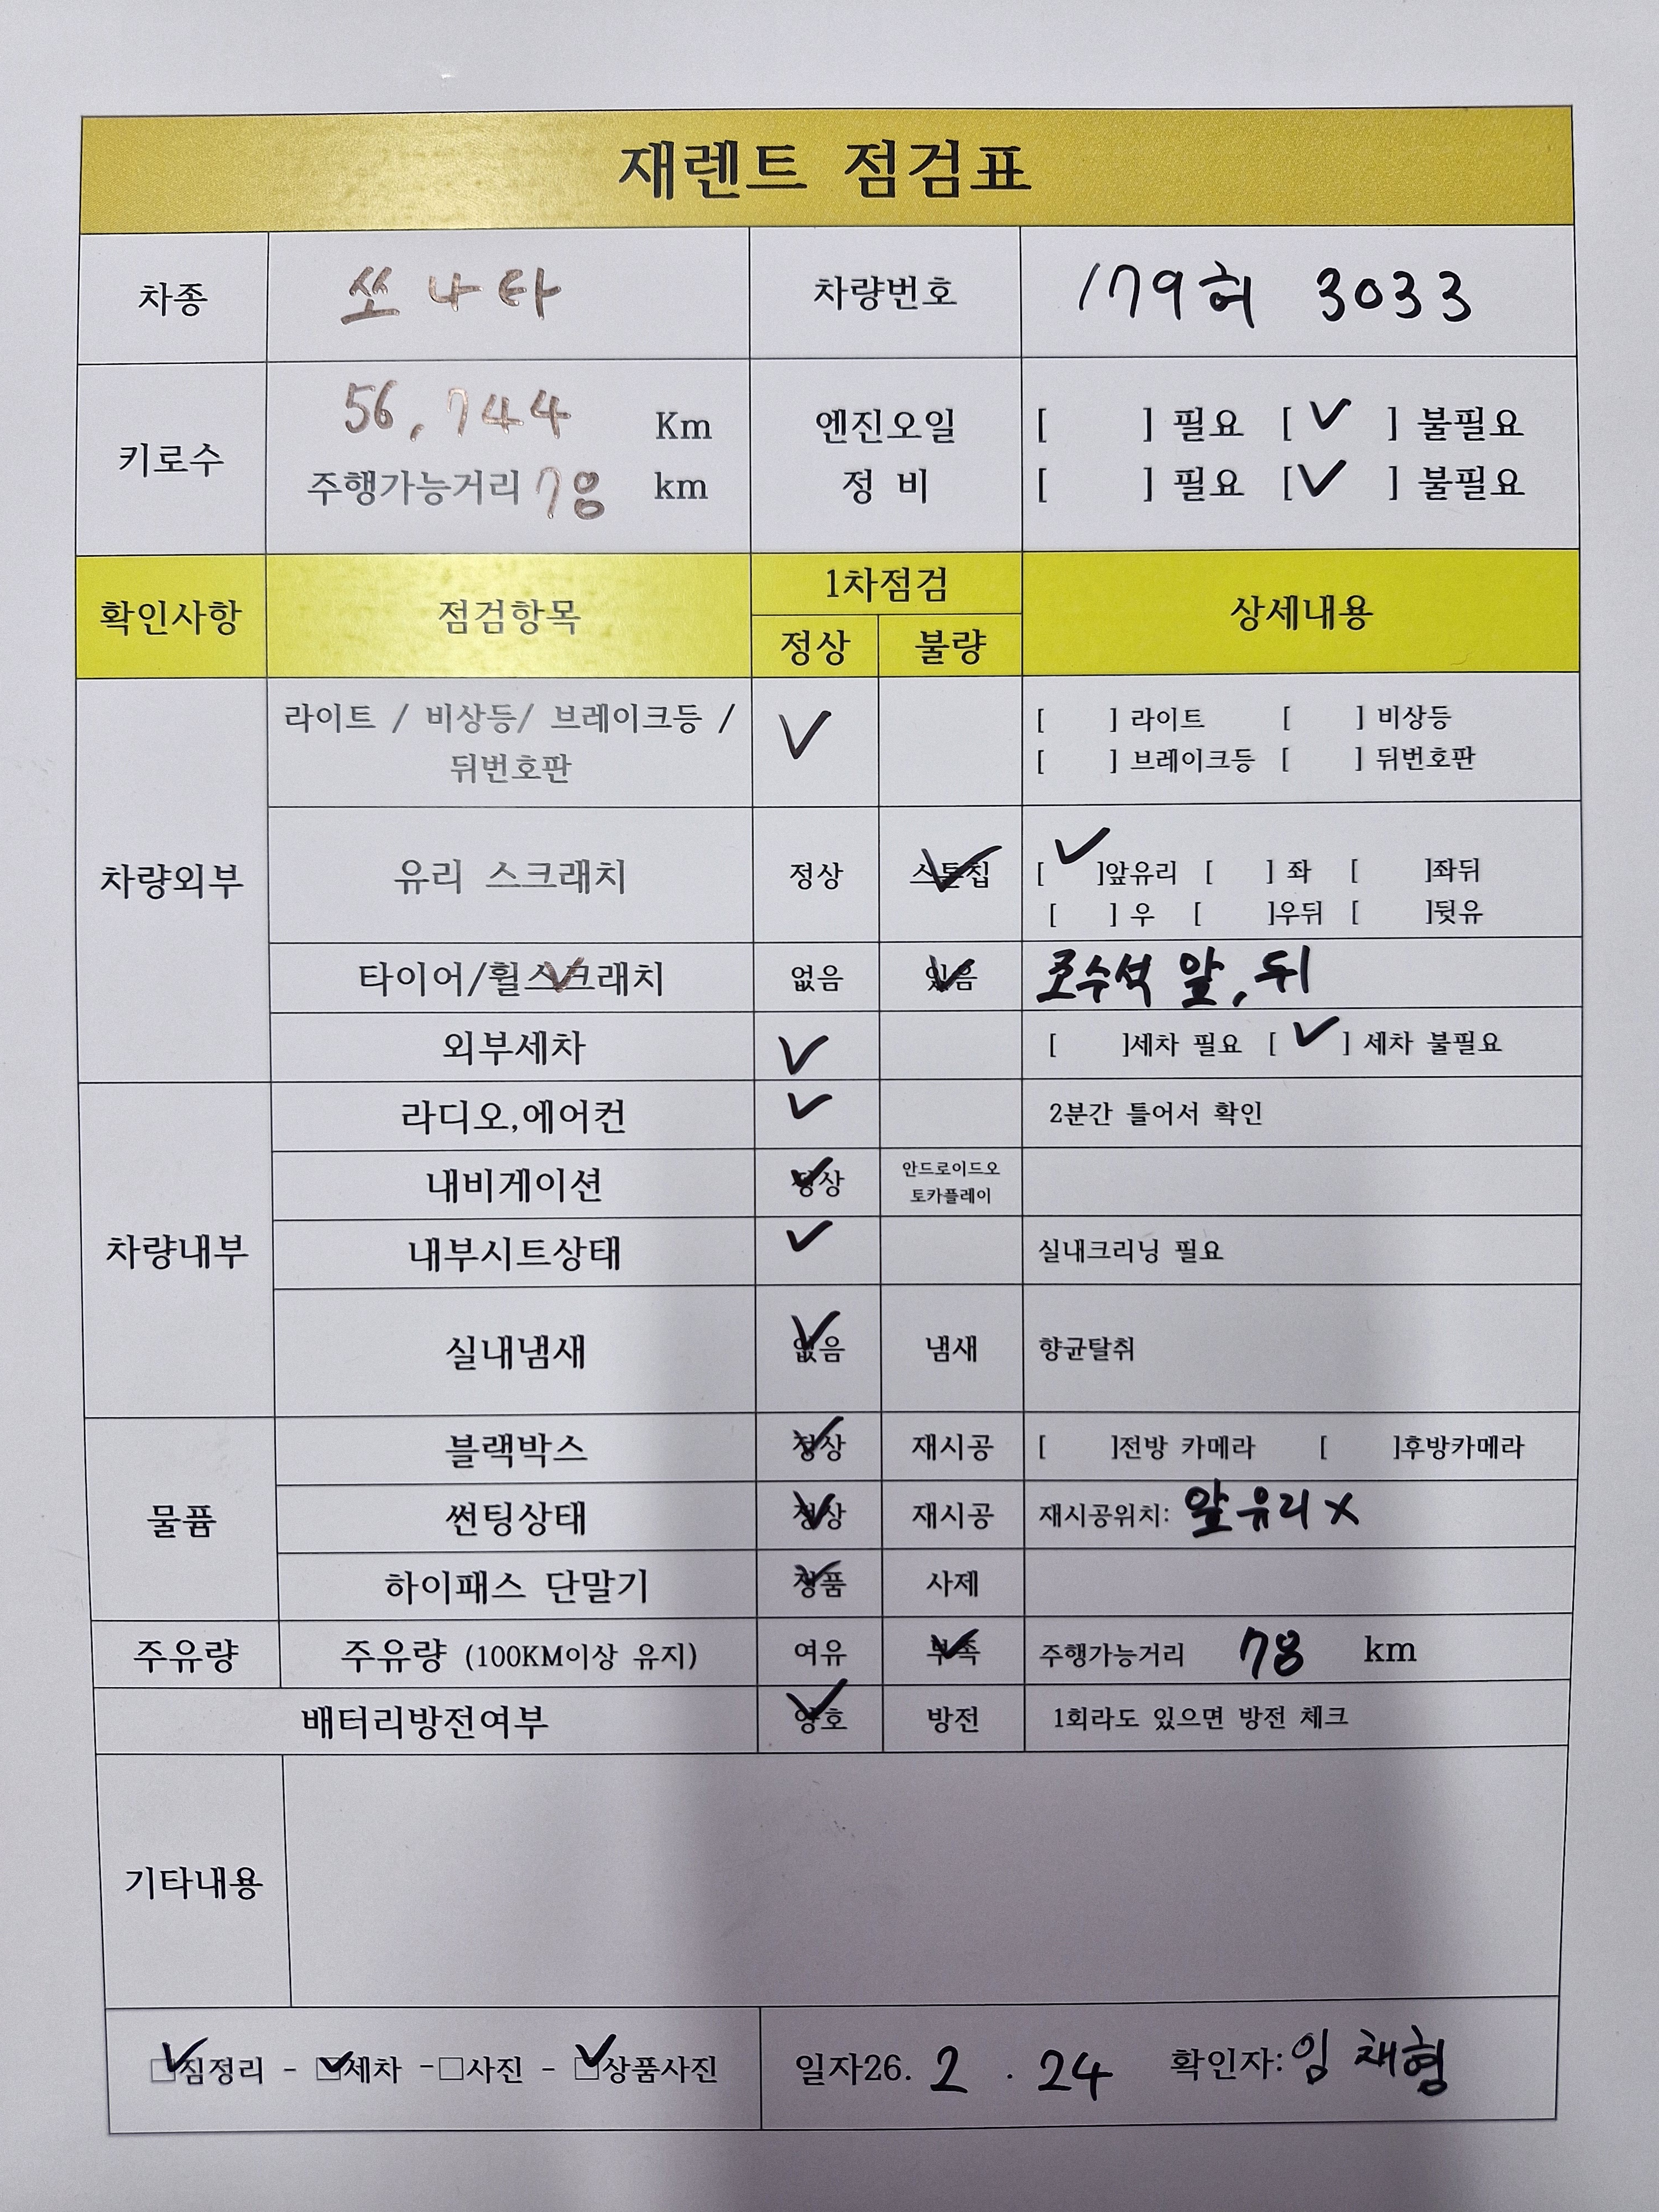 재렌트 점검표
차종 쏘나타 차량번호 179허 3033
키로수 56,744 Km 엔진오일 [ ] 필요 [ ✓ ] 불필요
주행가능거리 78 km 정 비 [ ] 필요 [ ✓ ] 불필요
확인사항 점검항목 1차점검 상세내용
정상 불량
차량외부 라이트 / 비상등/ 브레이크등 / ✓ [ ] 라이트 [ ] 비상등
뒤번호판 [ ] 브레이크등 [ ] 뒤번호판
유리 스크래치 정상 스톤칩 ✓ [ ✓ ]앞유리 [ ] 좌 [ ]좌뒤
[ ] 우 [ ]우뒤 [ ]뒷유
타이어/휠스크래치 ✓ 없음 있음 ✓ 조수석 앞, 뒤
외부세차 ✓ [ ]세차 필요 [ ✓ ] 세차 불필요
차량내부 라디오,에어컨 ✓ 2분간 틀어서 확인
내비게이션 정상 ✓ 안드로이드오
토카플레이
내부시트상태 ✓ 실내크리닝 필요
실내냄새 없음 ✓ 냄새 향균탈취
물품 블랙박스 정상 ✓ 재시공 [ ]전방 카메라 [ ]후방카메라
썬팅상태 정상 ✓ 재시공 재시공위치: 앞유리 X
하이패스 단말기 정품 ✓ 사제
주유량 주유량 (100KM이상 유지) 여유 부족 ✓ 주행가능거리 78 km
배터리방전여부 양호 ✓ 방전 1회라도 있으면 방전 체크
기타내용
☑짐정리 - ☑세차 -□사진 - ☑상품사진 일자26. 2 . 24 확인자: 임채형